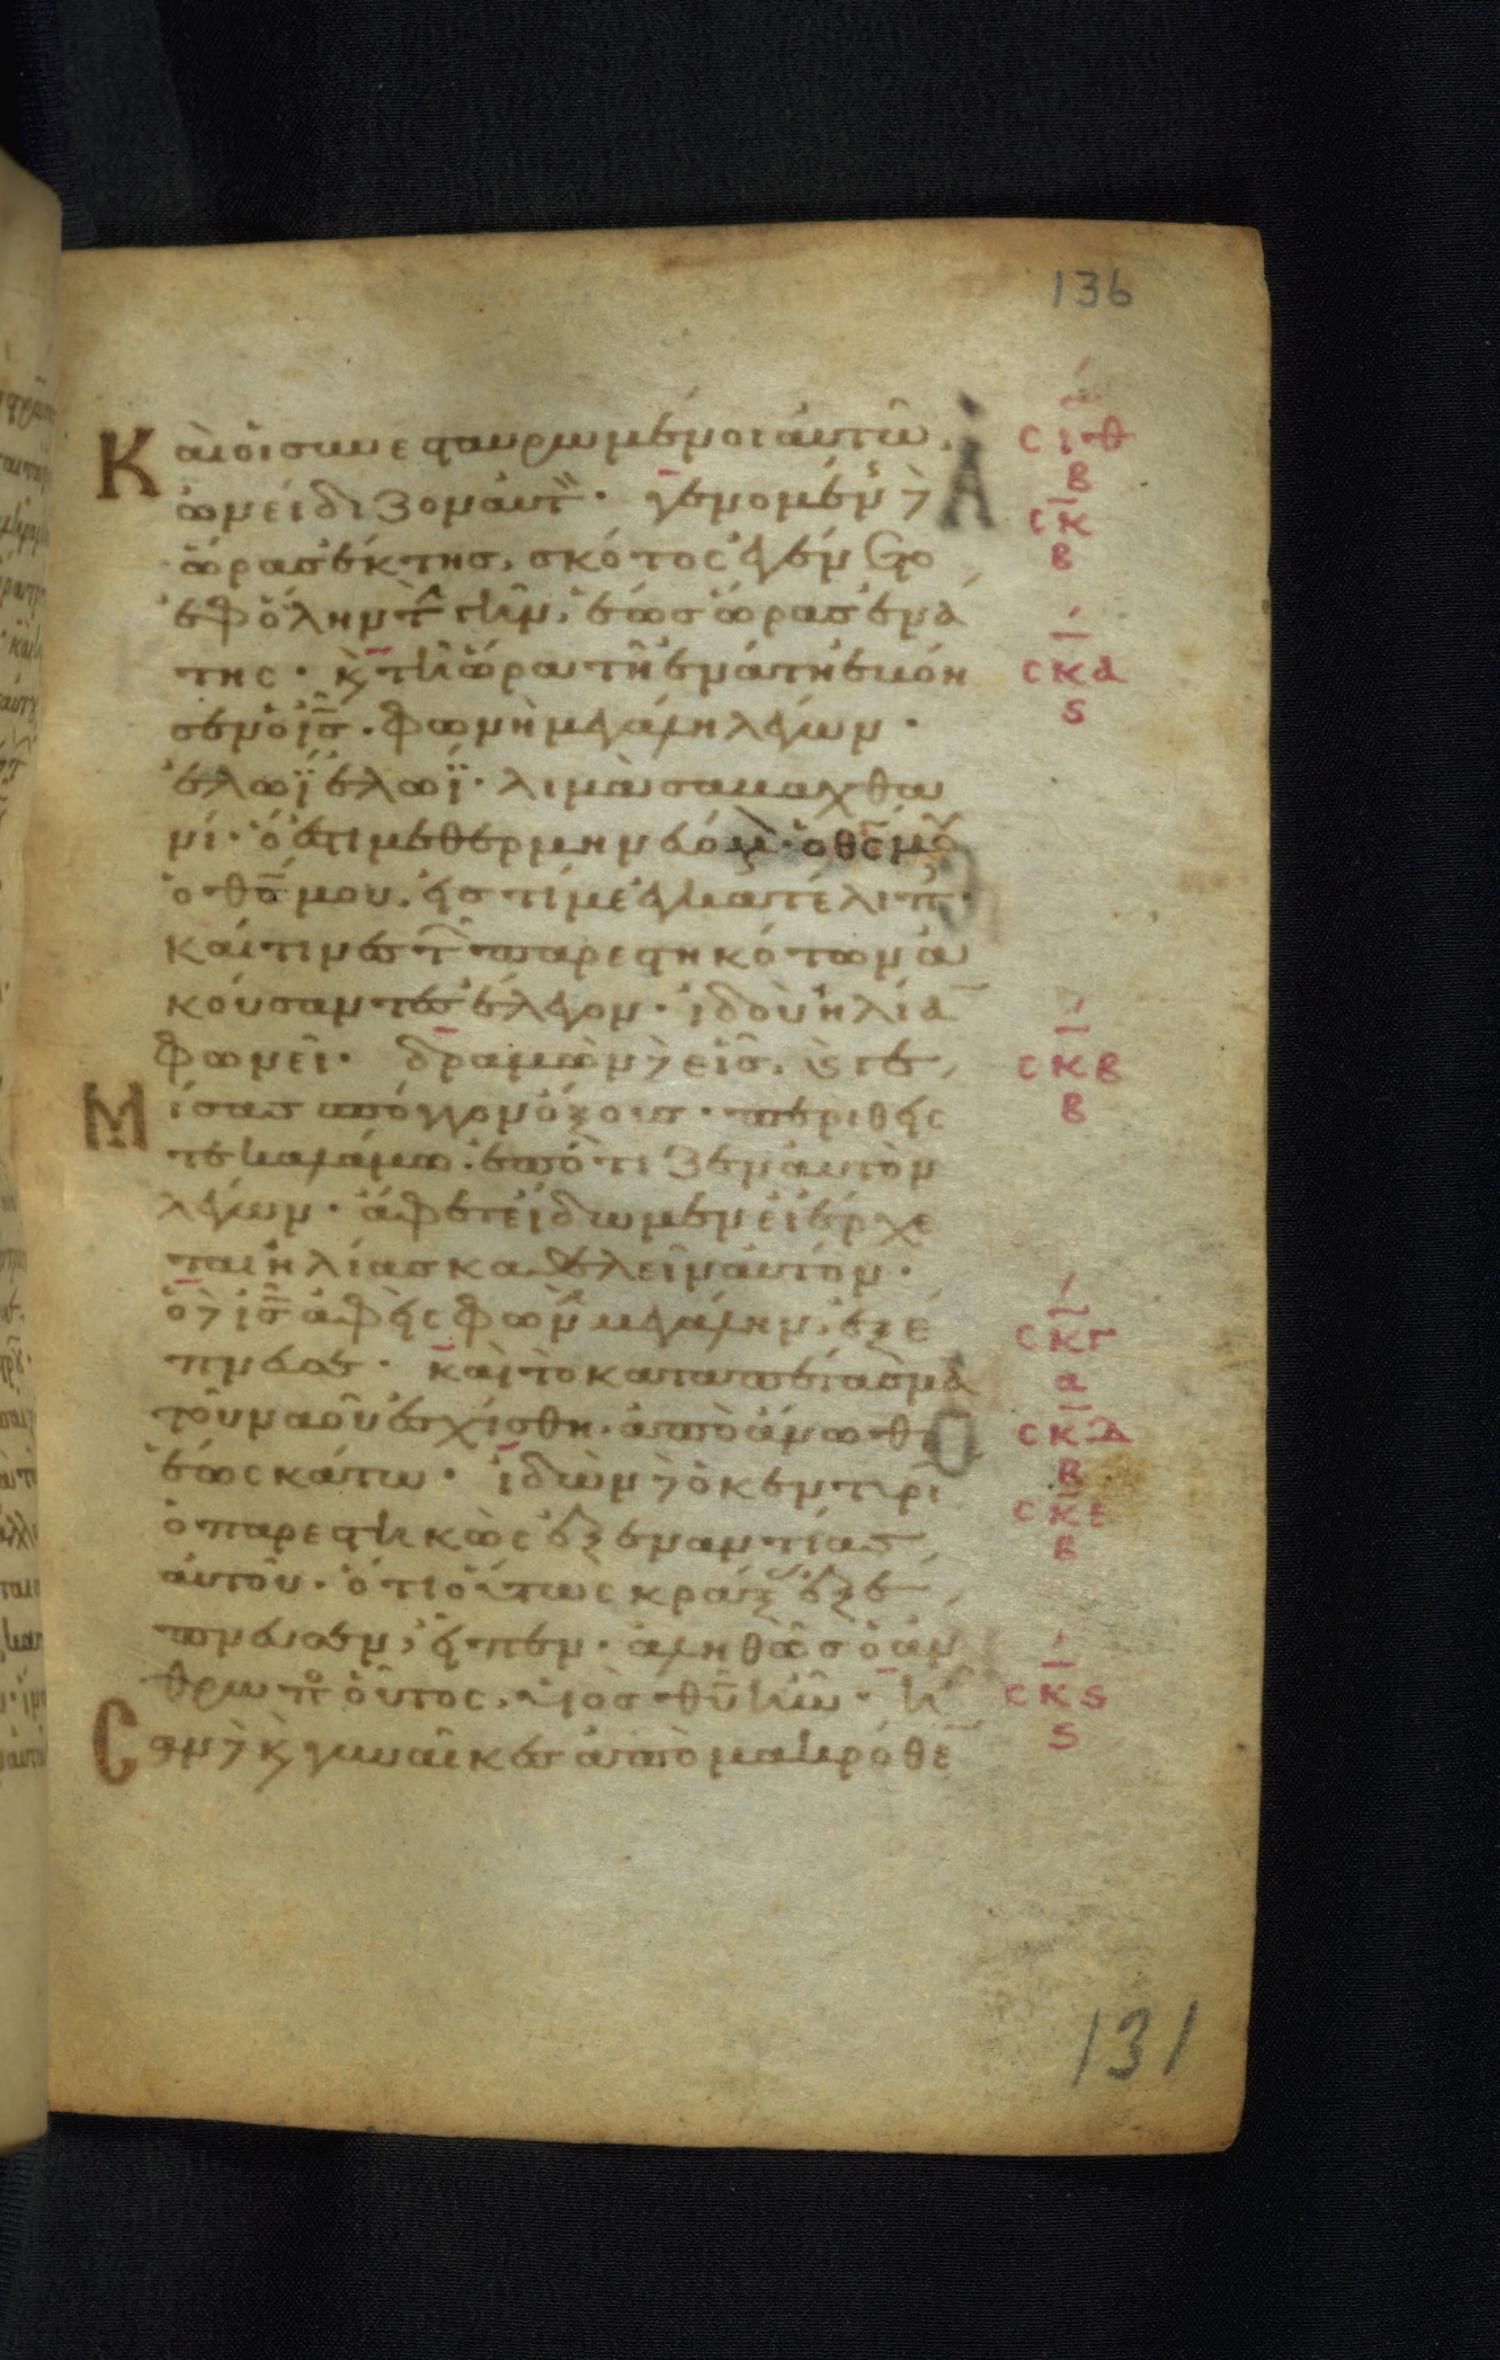 136
Καὶ οἱ συνεσταυρωμένοι αὐτῶ. σιθ
ὠνείδιζον αὐτ. γενομένης δὲ β
ὥρας ἕκτης, σκότος ἐγένετο σκ β
ἐφ ὅλην τ γῆν, ἕως ὥρας ἐνά
της. κ τῆ ὥρα τῆ ἐνάτη ἐβόη σκα
σεν ὁ ις. φωνὴ μεγάλη λέγων. ς
ἐλωῒ ἐλωῒ. λιμὰ σαμαχθα
νί. ὅ ἐστι μεθερμηνευόμ. ὁ θς μου
ὁ θς μου. εἰς τί με ἐγκατέλιπ.
καί τινες τ παρεστηκότων ἀ
κούσαντες ἔλεγον. ἰδοὺ ἠλίαν
φωνεῖ. δραμὼν δὲ εἷς. κ γε σκβ
μίσας σπόγγον ὄξους. περιθείς β
τε καλάμω. ἐπότιζεν αὐτὸν
λέγων. ἄφετε ἴδωμεν εἰ ἔρχε
ται ἠλίας καθελεῖν αὐτόν.
ὁ δὲ ις ἀφεὶς φωνὴν μεγάλην. ἐξέ σκγ
πνευσε. καὶ τὸ καταπέτασμα α
τοῦ ναοῦ ἐσχίσθη. ἀπὸ ἄνωθεν σκδ
ἕως κάτω. ἰδὼν δὲ ὁ κεντυρί β
ὁ παρεστηκὼς ἐξ ἐναντίας σκε
αὐτοῦ. ὅτι οὕτως κράξας ἐξέ β
πνευσεν, εἶπεν. ἀληθῶς ὁ ἄν
θρωπος οὗτος. υἱὸς θυ ἦν. ἦ σκς
σαν δὲ κ γυναῖκες ἀπὸ μακρόθεν ς
131